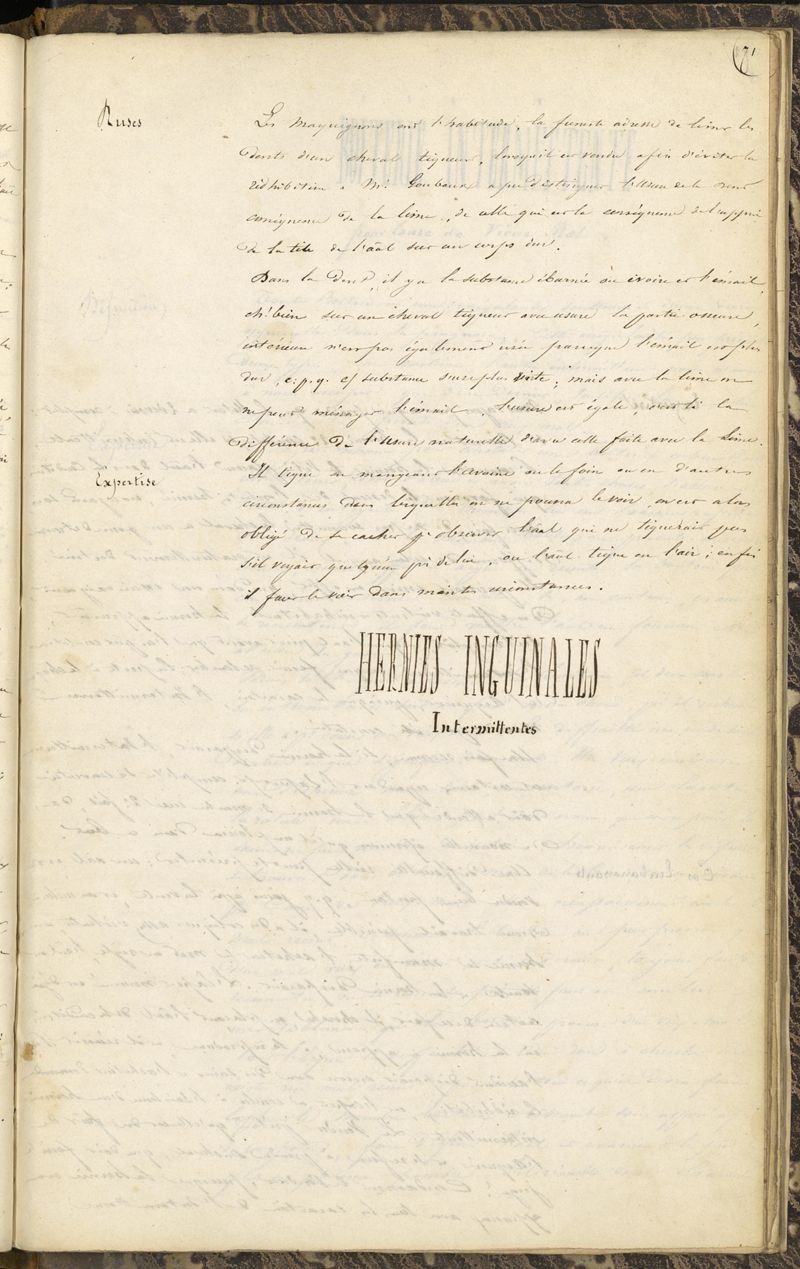 71
Ruses
Les Maquignons ont l'habitude, la funeste adresse de limer les
dents d'un cheval tiqueur, lorsqu'il est vendu afin d'éviter la
rédhibition. Mr. Goubaux a pu distinguer l'usure de la dent
conséquence de la lime, de celle qui est la conséquence de l'appui
de la tête de l'aal sur un corps dur.
Dans la dent, il y a la substance éburnée ou ivoire et l'émail,
eh! bien sur un cheval tiqueur avec usure la partie osseuse,
intérieure n'est pas également usée parceque l'émail est plus
dur, c.p.q. cf substance s'use plus vite; mais avec la lime on
ne peut ménager l'émail, l'usure est égale, voilà la
différence de l'usure naturelle d'avec celle faite avec la lime.
Expertise
Il tique en mangeant l'avoine ou le foin ou en d'autres
circonstances dans lesquelles on ne pourra le voir, on est alors
obligé de se cacher pr observer l'aal qui ne tiquerait pas
s'il voyait quelqu'un près de lui, ou l'aal tique en l'air; enfin
il faut le voir dans maintes circonstances.
HERNIES INGUINALES
Intermittentes